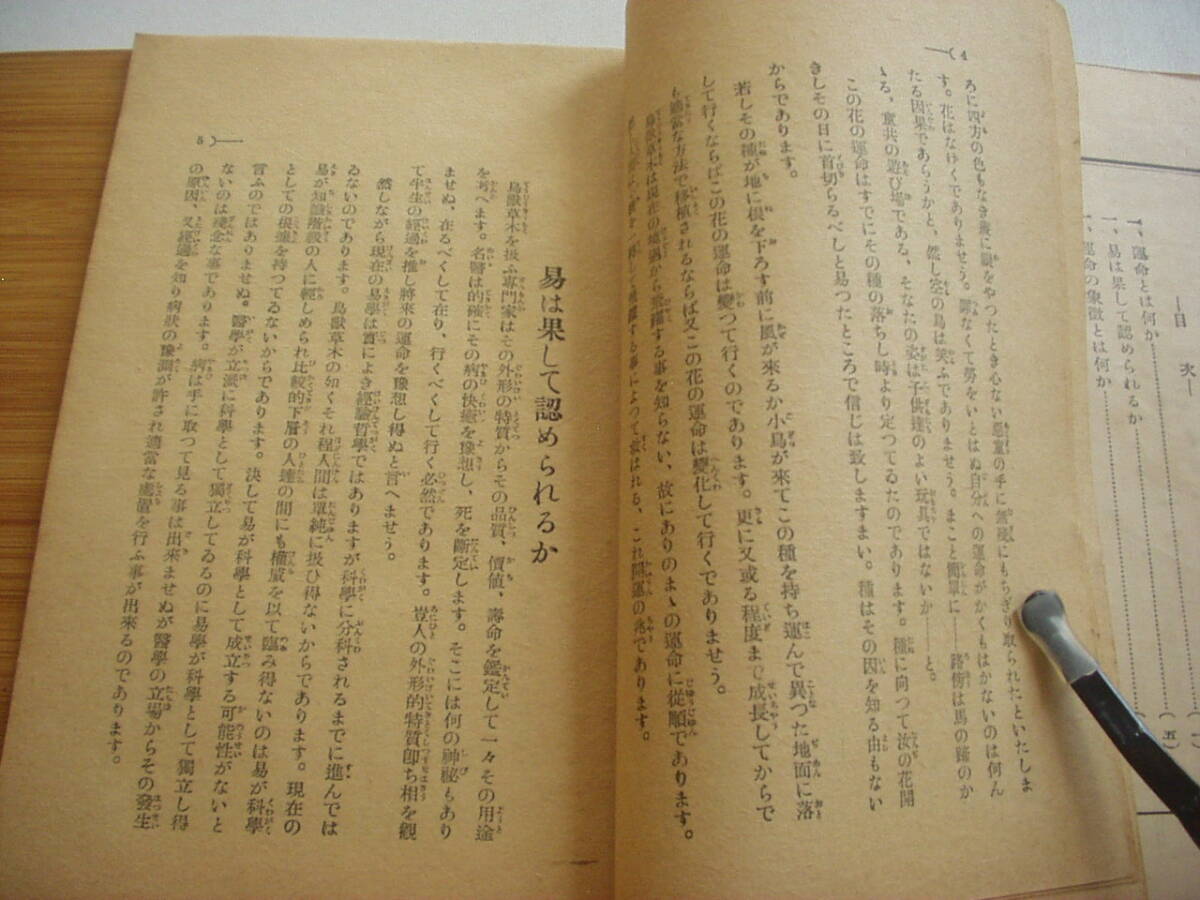 —目 次—
一、運命とは何か
一、易は果して認められるか
一、運命の象徴とは何か
(一
(五)
4
ろに四方の色もなき後に眼をやつたとき心ない惡童の手に無殘にもちぎり取られたといたしま
す。花はなけくでありませう。罪なくて勞をいとはぬ自分への運命がかくもはかないのは何ん
たる因果であらうかと、然し空の鳥は笑ふでありませう。まこと簡單に——路傍は馬の蹄のか
ゝる、童共の遊び場である、そなたの姿は子供達のよい玩具ではないか——と。
この花の運命はすでにその種の落ちし時より定つてゐたのであります。種に向つて汝の花開
きしその日に首切らるべしと易つたところで信じは致しますまい。種はその因を知る由もない
からであります。
若しその種が地に根を下ろす前に風が來るか小鳥が來てこの種を持ち運んで異つた地面に落
して行くならばこの花の運命は變つて行くのであります。更に又或る程度まで成長してからで
も適當な方法で移植されるならば又この花の運命は變化して行くでありませう。
鳥獸草木は現在の境遇から飛躍する事を知らない、故にありのまゝの運命に從順であります。
する事によつて救はれる、これ開運の兆であります。
5
易は果して認められるか
鳥獸草木を扱ふ專門家はその外形の特質からその品質、價値、壽命を鑑定して一々その用途
を考へます。名醫は的確にその病の快癒を豫想し、死を斷定します。そこには何の神祕もあり
ませぬ、在るべくして在り、行くべくして行く必然であります。豈人の外形的特質卽ち相を觀
て半生の經過を推し將來の運命を豫想し得ぬと言へませう。
然しながら現在の易學は實によき經驗哲學ではありますが科學に分科されるまでに進んでは
ゐないのであります。鳥獸草木の如くそれ程人間は單純に扱ひ得ないからであります。現在の
易が知識階級の人に輕しめられ比較的下層の人達の間にも權威を以て臨み得ないのは易が科學
としての根據を持つてゐないからであります。決して易が科學として成立する可能性がないと
言ふのではありませぬ。醫學が立派に科學として獨立してゐるのに易學が科學として獨立し得
ないのは殘念な事であります。病は手に取つて見る事は出來ませぬが醫學の立場からその發生
の原因、又經過を知り病狀の豫測が許され適當な處置を行ふ事が出來るのであります。